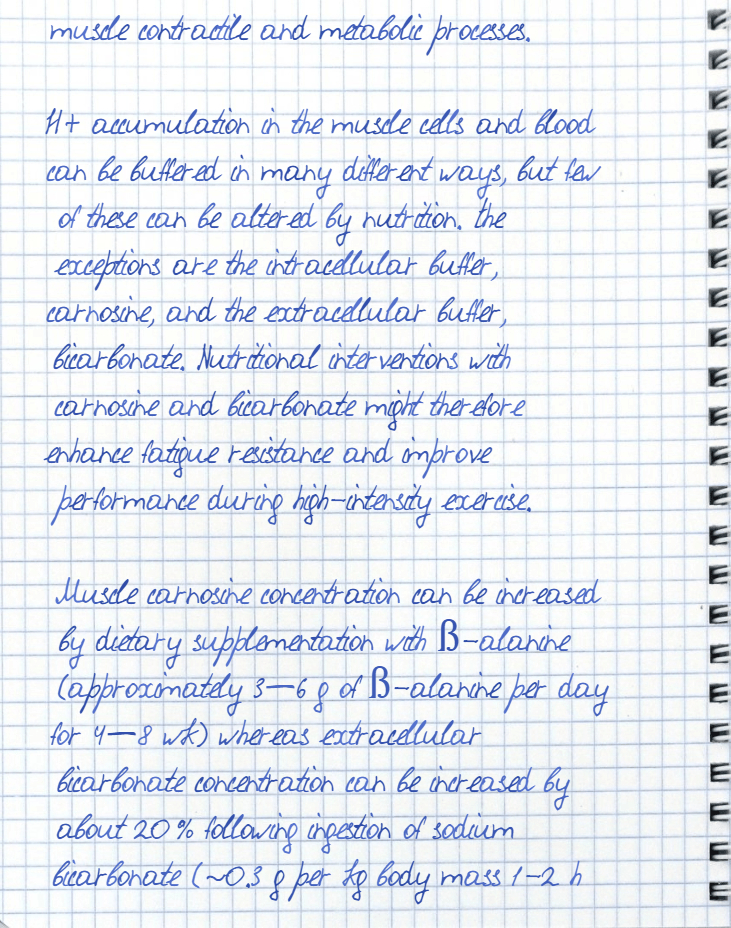 muscle contractile and metabolic processes.
H+ accumulation in the muscle cells and blood
can be buffered in many different ways, but few
of these can be altered by nutrition. The
exceptions are the intracellular buffer,
carnosine, and the extracellular buffer,
bicarbonate. Nutritional interventions with
carnosine and bicarbonate might therefore
enhance fatigue resistance and improve
performance during high-intensity exercise.
Muscle carnosine concentration can be increased
by dietary supplementation with ß-alanine
(approximately 3—6 g of ß-alanine per day
for 4—8 wk) whereas extracellular
bicarbonate concentration can be increased by
about 20% following ingestion of sodium
bicarbonate (~0.3 g per kg body mass 1-2 h